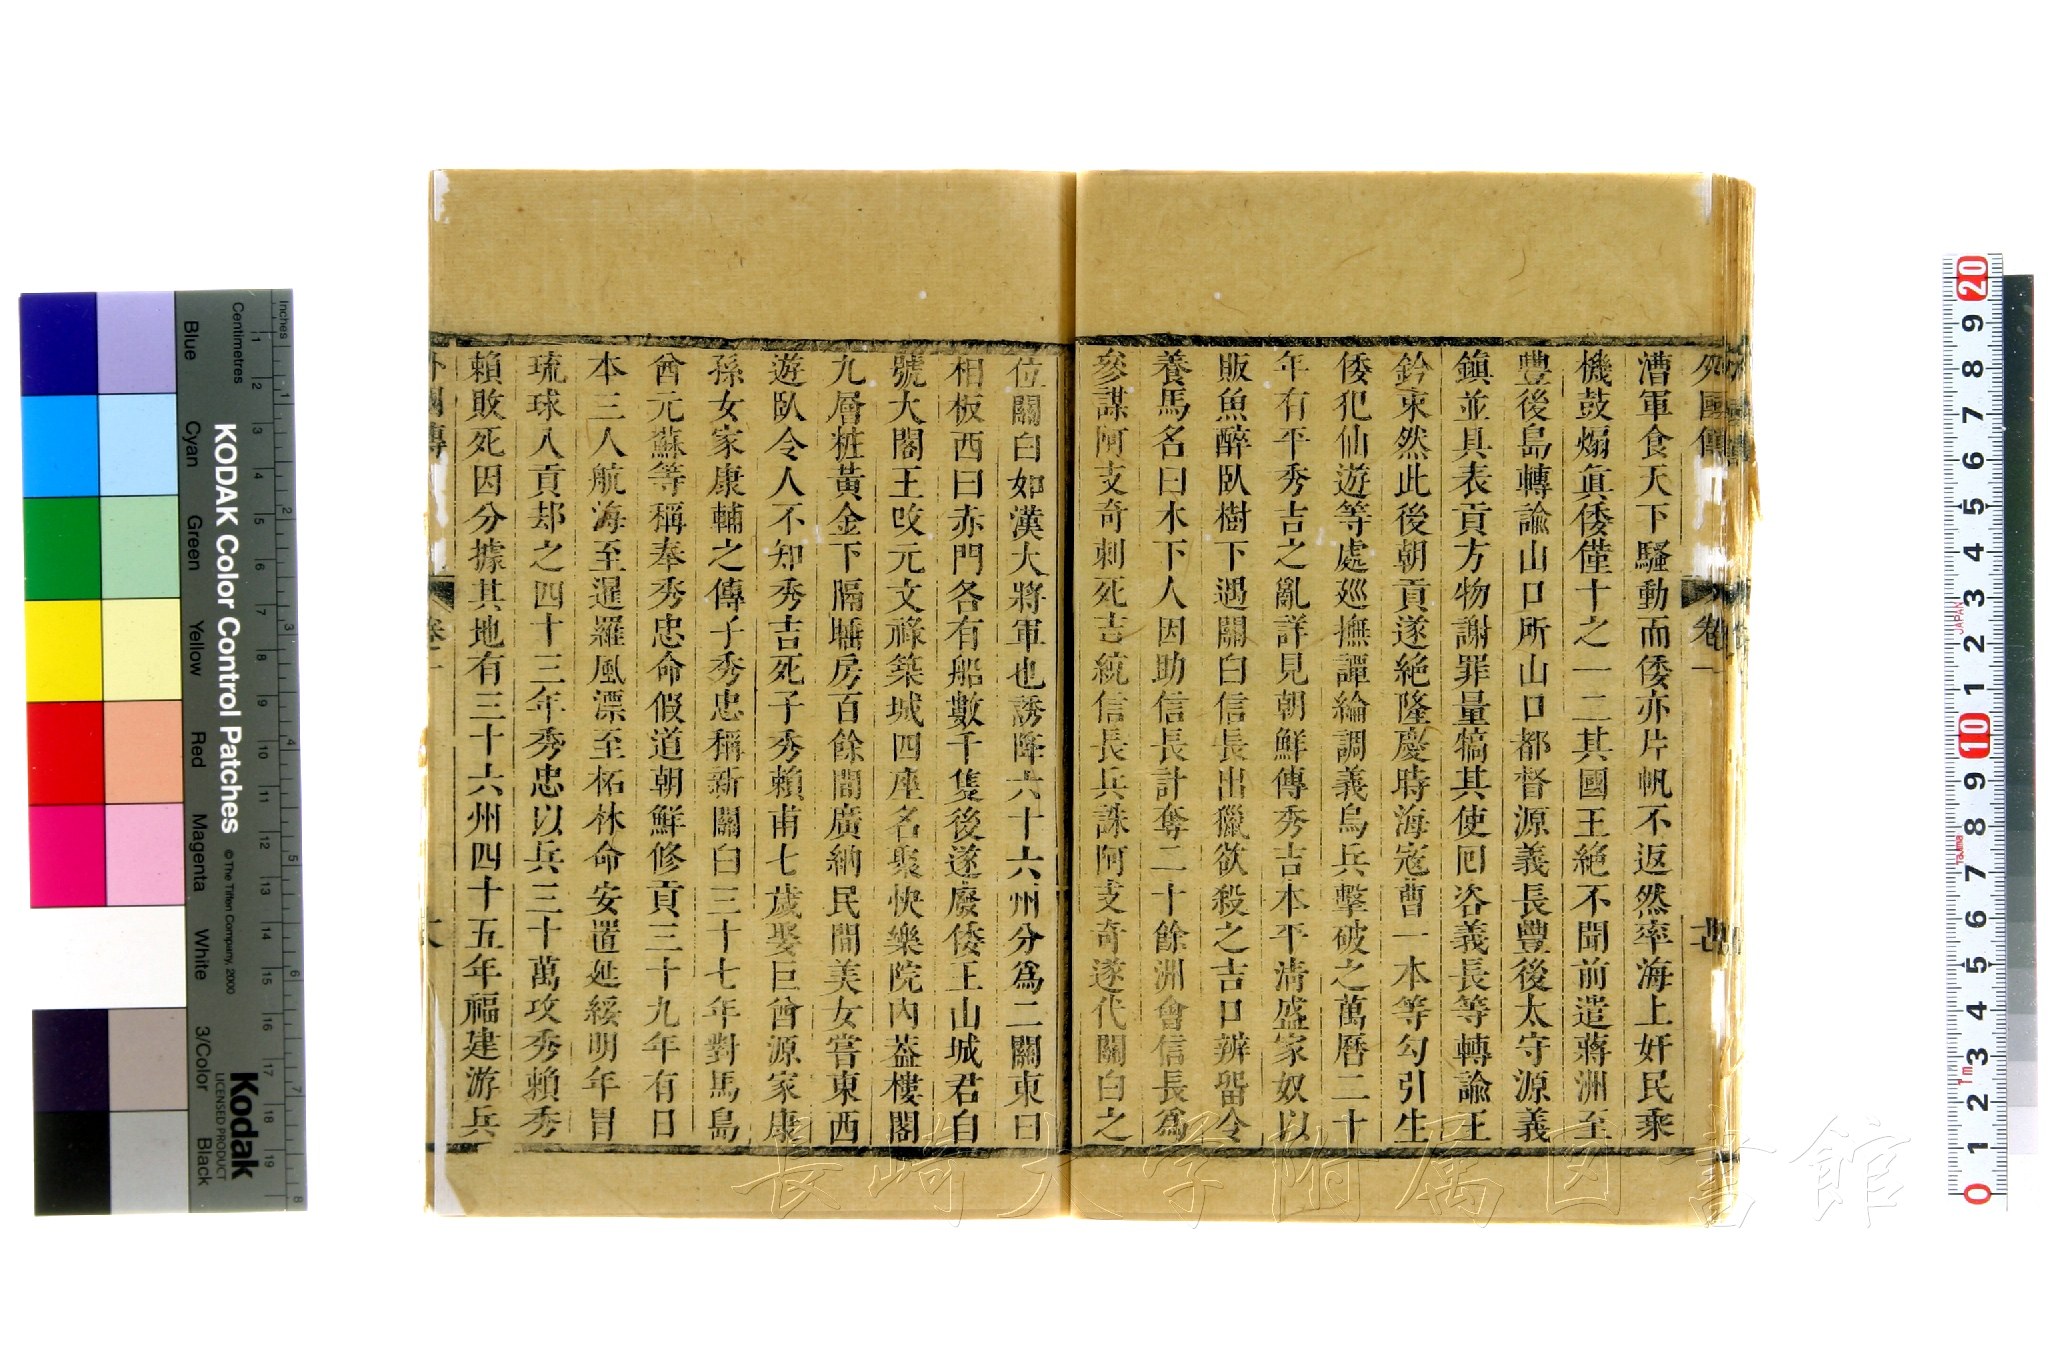 外國傳 卷一
漕軍食天下騷動而倭亦片帆不返然率海上奸民乘
機鼓煽眞倭僅十之一二其國王絶不聞前遣蔣洲至
豐後島轉諭山口所山口都督源義長豐後太守源義
鎭並具表貢方物謝罪量犒其使囘咨義長等轉諭王
鈐束然此後朝貢遂絶隆慶時海寇曹一本等勾引生
倭犯仙遊等處廵撫譚綸調義烏兵擊破之萬曆二十
年有平秀吉之亂詳見朝鮮傳秀吉本平清盛家奴以
販魚醉臥樹下遇關白信長出獵欲殺之吉口辨畱令
養馬名曰木下人因助信長計奪二十餘洲會信長爲
參謀阿支奇刺死吉統信長兵誅阿支奇遂代關白之
位關白如漢大將軍也誘降六十六州分爲二關東曰
相板西曰赤門各有船數千隻後遂廢倭王山城君自
號大閣王攺元文祿築城四座名聚快樂院內葢樓閣
九層粧黃金下隔睡房百餘間廣納民間美女嘗東西
遊臥令人不知秀吉死子秀賴甫七歲娶巨酋源家康
孫女家康輔之傳子秀忠稱新關白三十七年對馬島
酋元蘇等稱奉秀忠命假道朝鮮修貢三十九年有日
本三人航海至暹羅風漂至柘林命安置延綏明年冒
琉球入貢却之四十三年秀忠以兵三十萬攻秀賴秀
賴敗死因分據其地有三十六州四十五年福建游兵
外國傳 卷一
KODAK Color Control Patches
© The Tiffen Company, 2000
Kodak
LICENSED PRODUCT
Inches
Centimetres
Blue
Cyan
Green
Yellow
Red
Magenta
White
3/Color
Black
長崎大学附属図書館